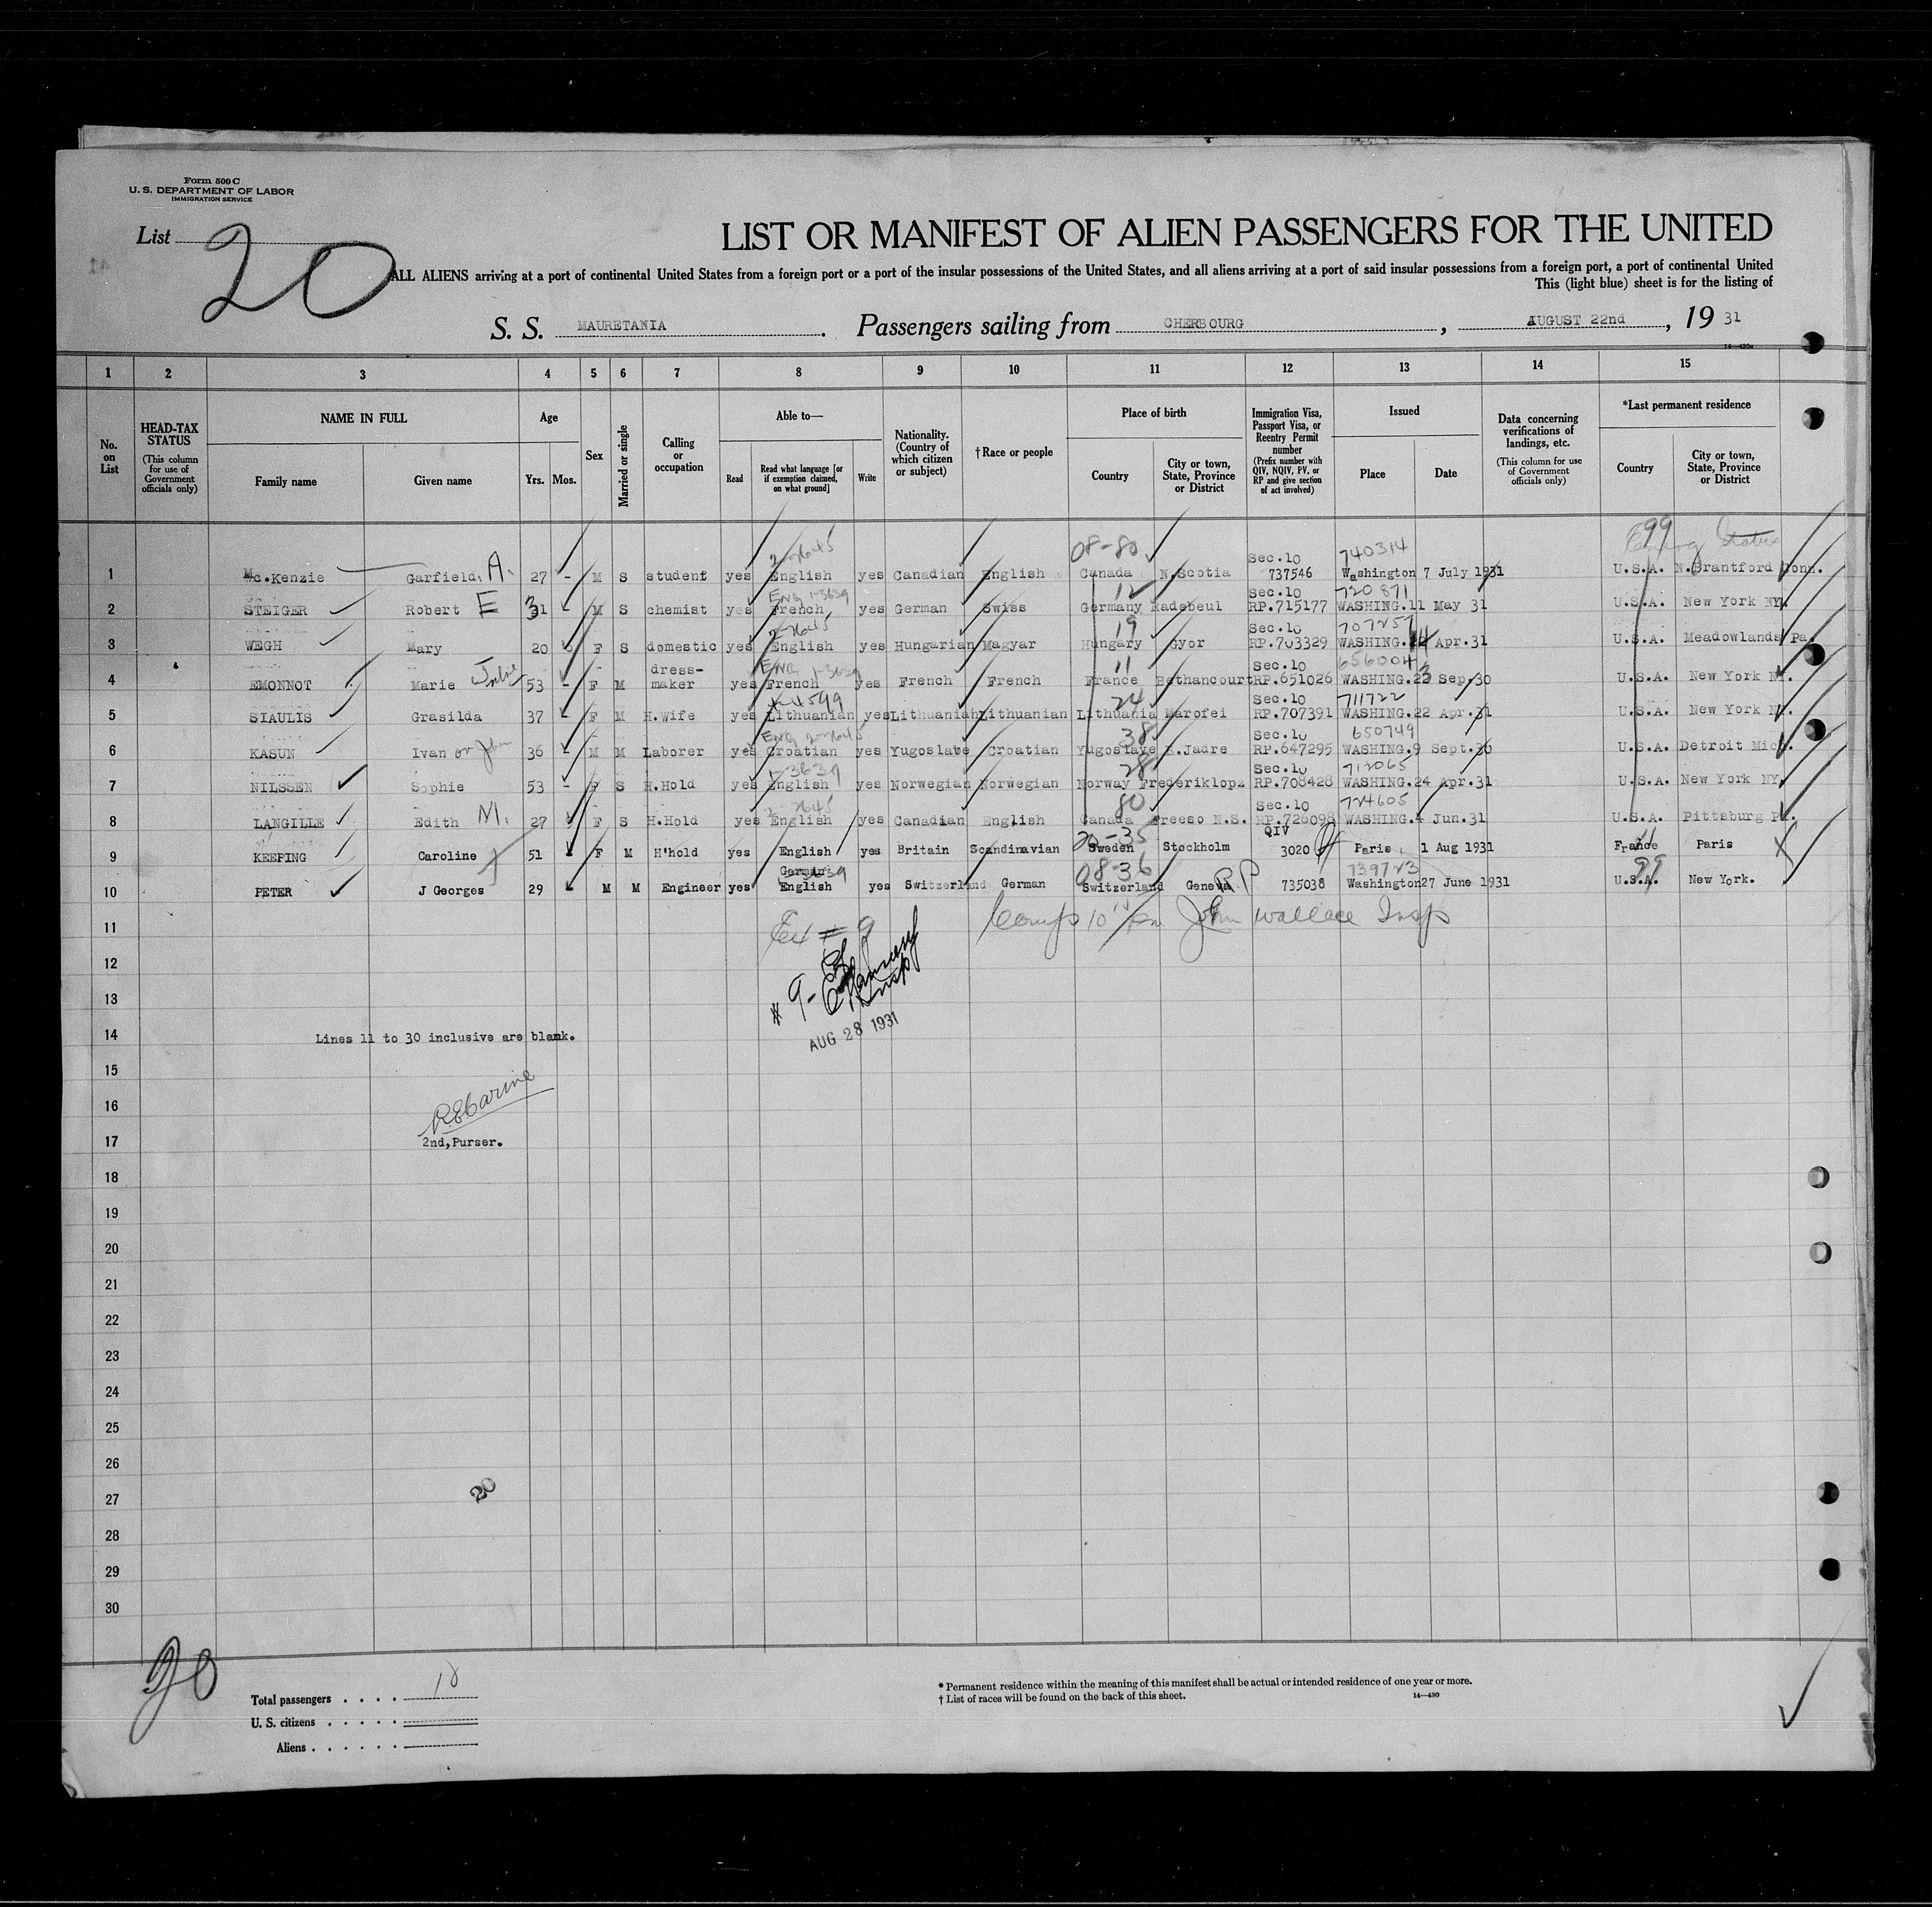 Form 500 C
U. S. DEPARTMENT OF LABOR
IMMIGRATION SERVICE
List 20
LIST OR MANIFEST OF ALIEN PASSENGERS FOR THE UNITED
ALL ALIENS arriving at a port of continental United States from a foreign port or a port of the insular possessions of the United States, and all aliens arriving at a port of said insular possessions from a foreign port, a port of continental United
This (light blue) sheet is for the listing of
S. S. MAURETANIA. Passengers sailing from CHERBOURG, AUGUST 22nd, 19 31
14—430a
1 2 3 4 5 6 7 8 9 10 11 12 13 14 15
No. on List
HEAD-TAX STATUS
(This column for use of Government officials only)
NAME IN FULL
Family name Given name
Age
Yrs. Mos.
Sex
Married or single
Calling or occupation
Able to—
Read
Read what language [or if exemption claimed, on what ground]
Write
Nationality. (Country of which citizen or subject)
†Race or people
Place of birth
Country
City or town, State, Province or District
Immigration Visa, Passport Visa, or Reentry Permit number
(Prefix number with QIV, NQIV, PV, or RP and give section of act involved)
Issued
Place Date
Data concerning verifications of landings, etc.
(This column for use of Government officials only)
*Last permanent residence
Country
City or town, State, Province or District
2-7645 08-80 Sec.10 740314 99
1 Mc.Kenzie Garfield. A. 27 - M S student yes English yes Canadian English Canada N.Scotia 737546 Washington 7 July 1931 U.S.A. N.Brantford Conn.
ENG 1-3639 12 Sec.10 720871
2 STEIGER Robert E 31 - M S chemist yes French yes German Swiss Germany Radebeul RP.715177 WASHING.11 May 31 U.S.A. New York NY.
2-7645 19 Sec.10 707257
3 WEGH Mary 20 F S domestic yes English yes Hungarian Magyar Hungary Gyor RP.703329 WASHING. Apr.31 U.S.A. Meadowlands Pa.
dress- ENG 1-3639 11 Sec.10 656004
4 EMONNOT Marie 53 - F M maker yes French yes French French France Bethancourt RP.651026 WASHING.23 Sep.30 U.S.A. New York NY.
4599 24 Sec.10 711722
5 SIAULIS Grasilda 37 - F M H.Wife yes Lithuanian yes Lithuanian Lithuanian Lithuania Marofei RP.707391 WASHING.22 Apr.31 U.S.A. New York NY.
ENG 2-7645 38 Sec.10 650749
6 KASUN Ivan or John 36 - M M Laborer yes Croatian yes Yugoslave Croatian Yugoslave B.Jadre RP.647295 WASHING.9 Sept.30 U.S.A. Detroit Mich.
1-3639 28 Sec.10 712065
7 NILSSEN Sophie 53 - F S H.Hold yes English yes Norwegian Norwegian Norway Frederiklopz RP.708428 WASHING.24 Apr.31 U.S.A. New York NY.
2-7645 80 Sec.10 724605
8 LANGILLE Edith M. 27 F S H.Hold yes English yes Canadian English Canada Freeso N.S. RP.726098 WASHING.4 Jun.31 U.S.A. Pittsburg Pa.
20-35 QIV 11
9 KEEPING Caroline 51 F M H'hold yes English yes Britain Scandinavian Sweden Stockholm 3020 Paris 1 Aug 1931 France Paris
German 3639 08-36 739723 99
10 PETER J Georges 29 M M Engineer yes English yes Switzerland German Switzerland Geneva RP 735038 Washington 27 June 1931 U.S.A. New York.
11 Ex # 9 Comps 10 John Wallace Insp
12
13 # 9- Insp
AUG 28 1931
14 Lines 11 to 30 inclusive are blank.
15
16
17 2nd, Purser.
18
19
20
21
22
23
24
25
26
27 20
28
29
30
20
Total passengers . . . . 10
U. S. citizens . . . . .
Aliens . . . . . .
* Permanent residence within the meaning of this manifest shall be actual or intended residence of one year or more.
† List of races will be found on the back of this sheet.
14—430